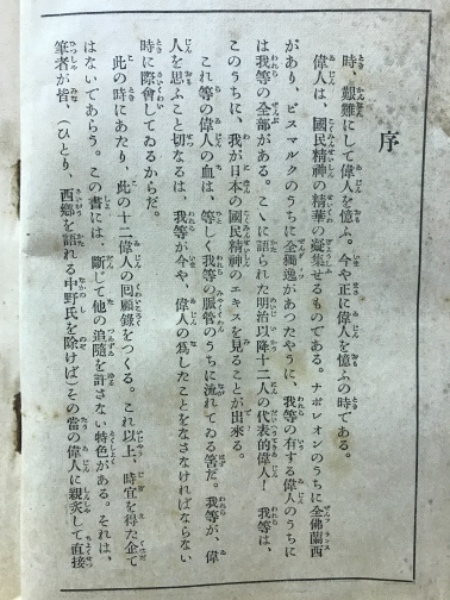 序
時、艱難にして偉人を憶ふ。今や正に偉人を憶ふの時である。
偉人は、國民精神の精華の凝集せるものである。ナポレオンのうちに全佛蘭西
があり、ビスマルクのうちに全獨逸があつたやうに、我等の有する偉人のうちに
は我等の全部がある。こゝに語られた明治以降十二人の代表的偉人！　我等は、
このうちに、我が日本の國民精神のエキスを見ることが出來る。
これ等の偉人の血は、等しく我等の脈管のうちに流れてゐる筈だ。我等が、偉
人を思ふこと切なるは、我等が今や、偉人の爲したことをなさなければならない
時に際會してゐるからだ。
此の時にあたり、此の十二偉人の囘顧錄をつくる。これ以上、時宜を得た企て
はないであらう。この書には、斷じて他の追隨を許さない特色がある。それは、
筆者が皆、（ひとり、西鄕を語れる中野氏を除けば）その當の偉人に親炙して直接